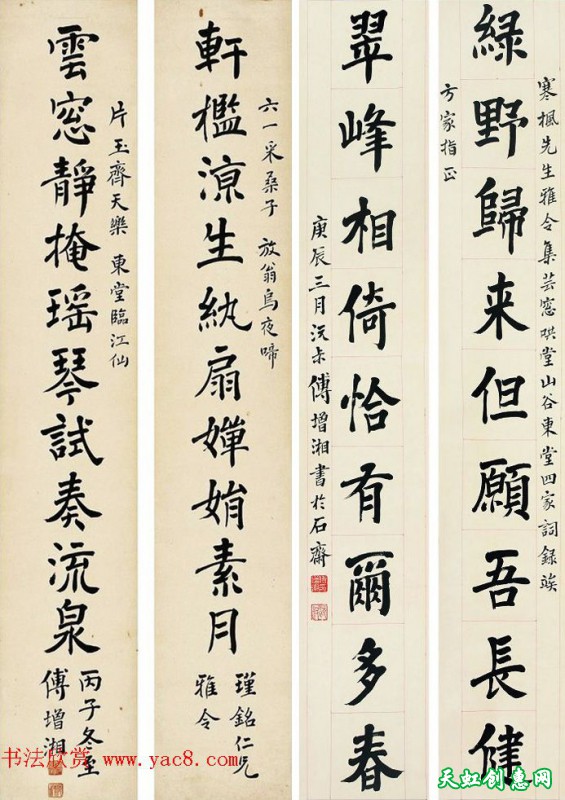 寒楓先生雅令集芸窓烘堂山谷東堂四家詞録竢
綠野歸来但願吾長健
方家指正
翠峰相倚恰有爾多春
庚辰三月沅尗傅增湘書於石齋
六一采桑子 放翁烏夜啼
軒檻涼生紈扇嬋娟素月
瑾銘仁兄
雅令
片玉齊天樂 東堂臨江仙
雲窓靜掩瑤琴試奏流泉
丙子冬至
傅增湘
书法欣赏 www.yac8.com
天虹创惠网